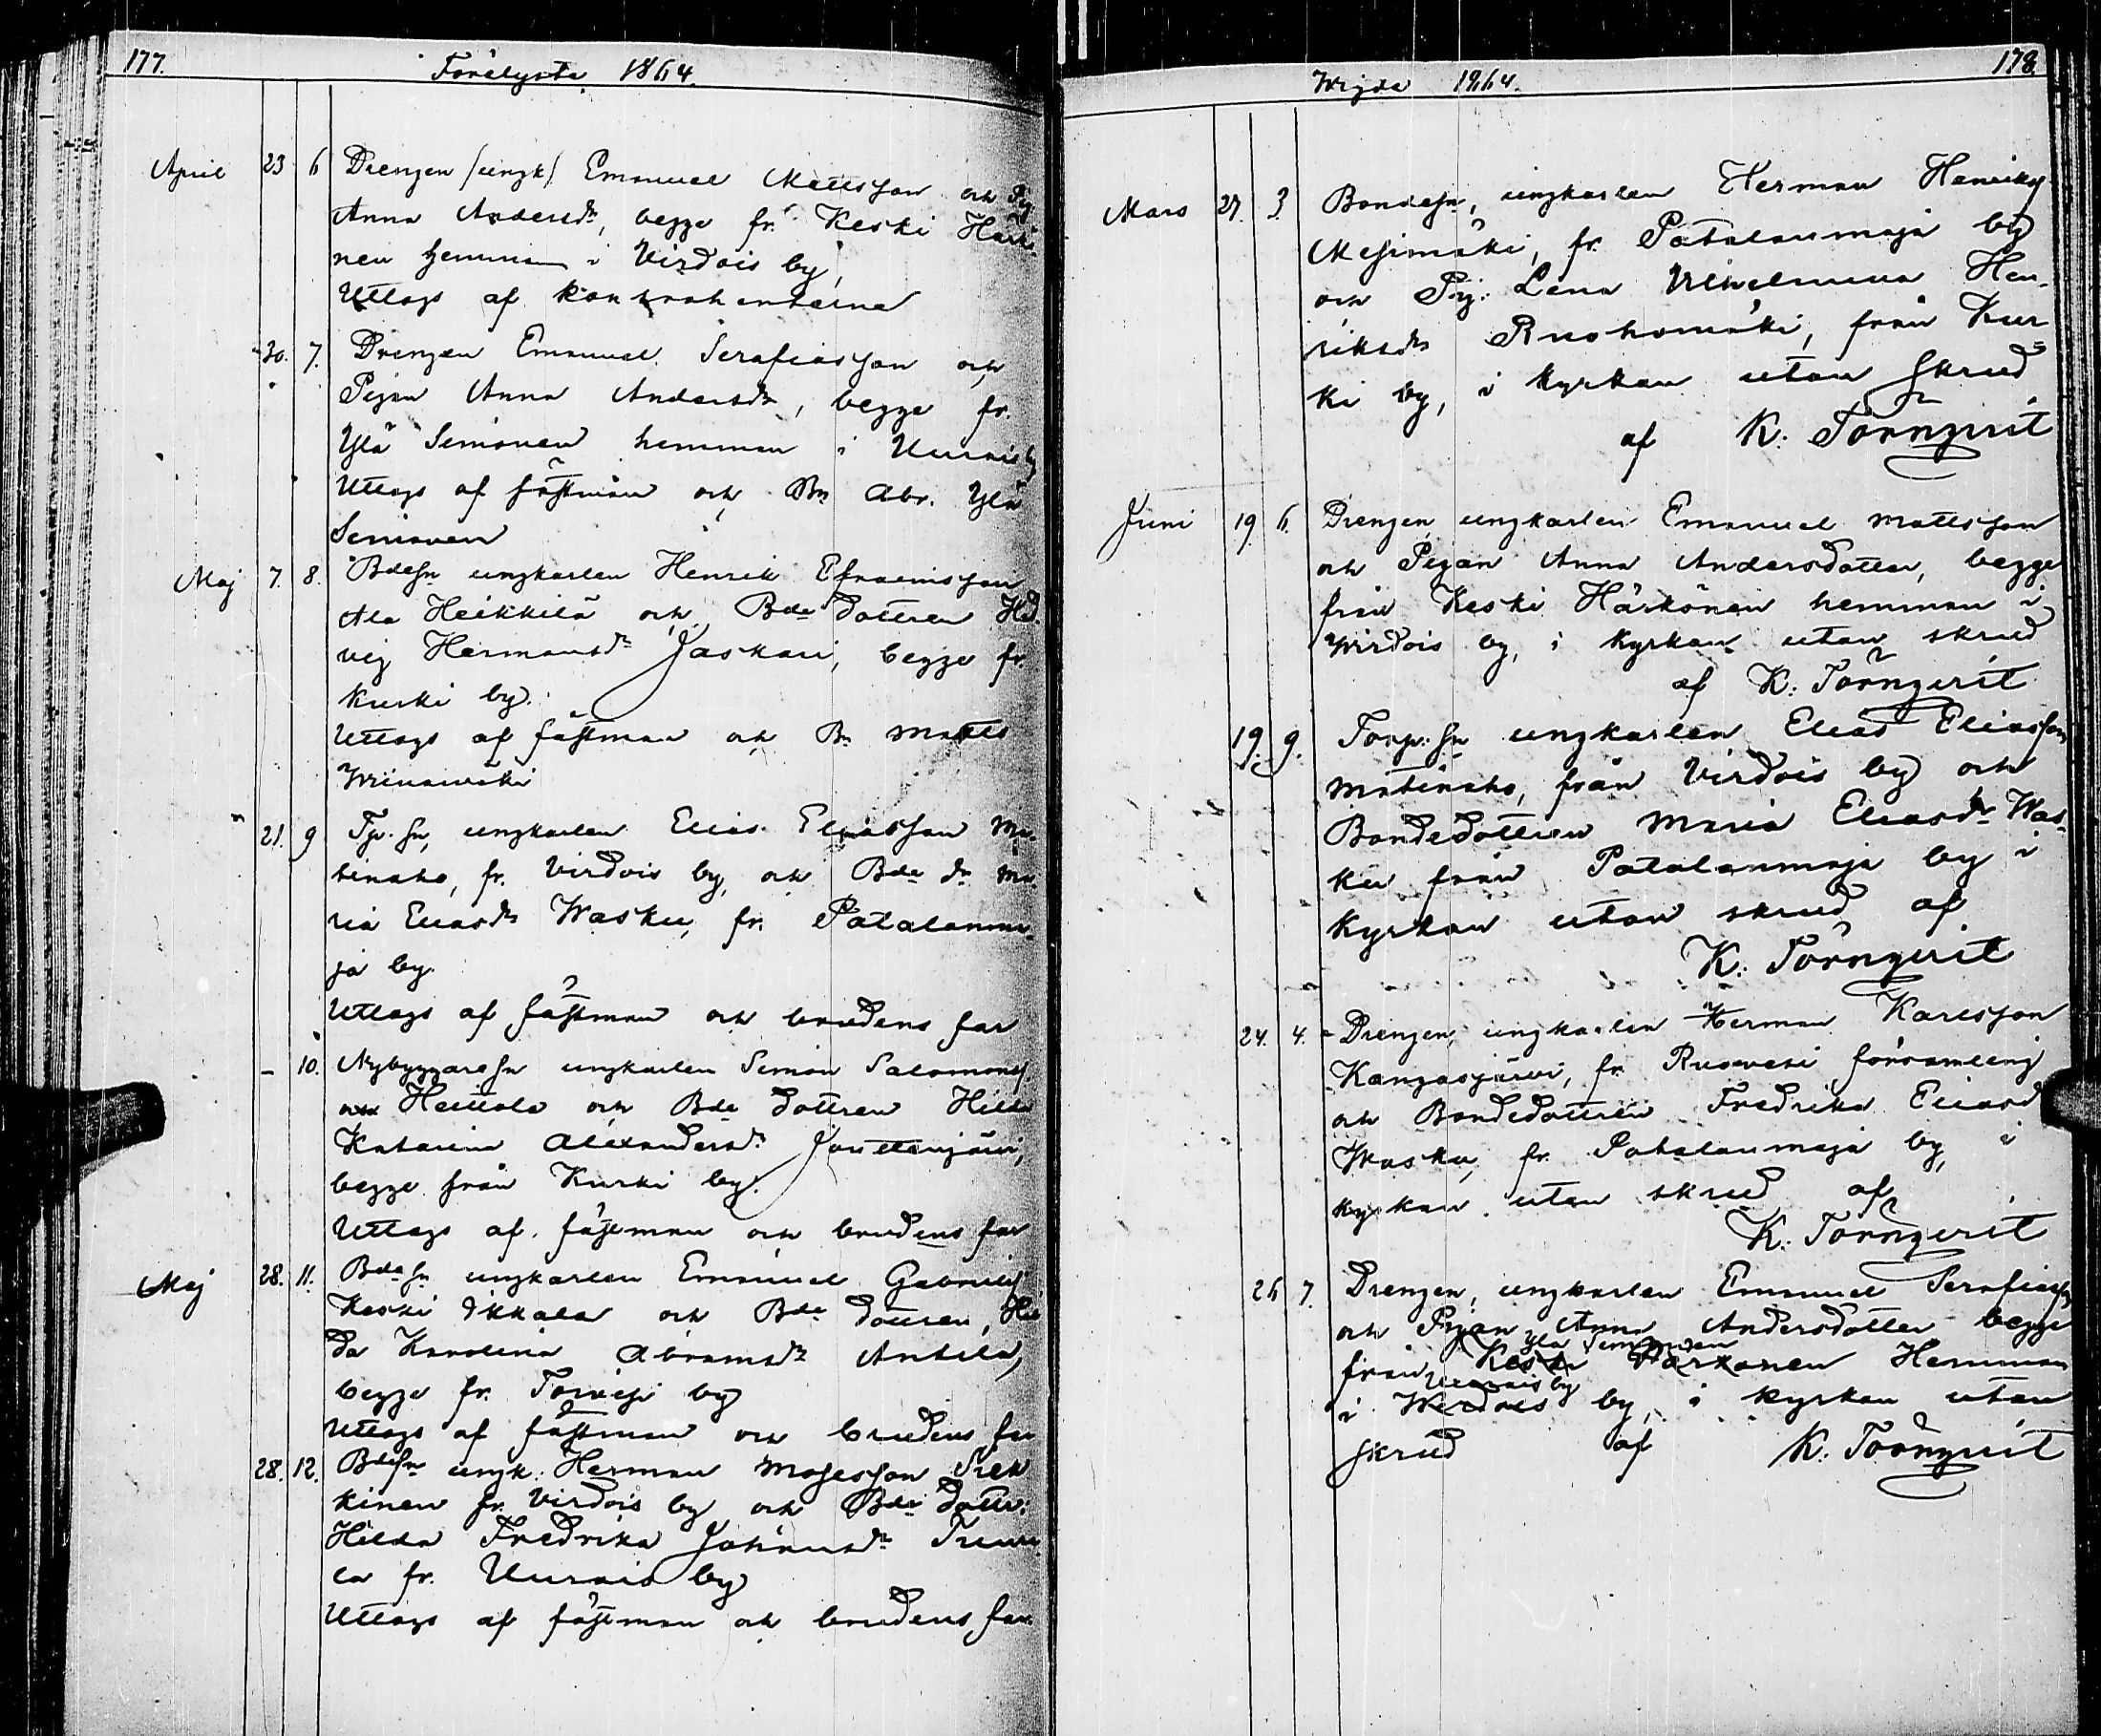 177.
Förelyste 1864.
April 23 6 Drengen /ungk/ Emanuel Mattsson och Pig
Anna Andersdr, begge fr. Keski Härkö
nen hemman i Virdois by,
Uttogs af kontrahenterna
30. 7. Drengen Emanuel Serafiasson och
Pigan Anna Andersdr, begge fr.
Ylä Simonen hemman i Uurais by
Uttogs af fästman och Bn Abr. Ylä
Simonen
Maj 7. 8. Bdesn ungkarlen Henrik Efraimsson
Ala Heikkilä och Bde dottren Hed
vig Hermansdr Jaskari, begge fr.
Kurki by.
Uttogs af fästman och Bn Matts
21. 9 Tp. sn, ungkarlen Elias Eliasson Ma
tinaho, fr. Virdois by, och Bde dr Ma
ria Eliasdr Wasku, fr. Patalanma
ja by.
Uttogs af fästman och brudens far
– 10. Nybyggaresn ungkarlen Simon Salomons
Heittola och Bde dottren Hilda
Katarina Alexandersdr Jouttenjärvi,
begge från Kurki by.
Uttogs af fästman och brudens far
Maj 28. 11. Bdesn ungkarlen Emanuel Gabriels
Keski Ikkala och Bde dottren, Hil
da Karolina Abramsdr Antila,
begge fr. Toivesi by
Uttogs af fästman och brudens far
28. 12. Bdesn ungk. Herman Mosesson
kinen fr. Virdois by och Bde dottr.
Hilda Fredrika Johansdr
la fr. Uurais by
Uttogs af fästman och brudens far
178.
Wigda 1864.
Mars 27. 3. Bondesn, ungkarlen Herman Henriks
Mesimäki, fr. Patalanmaja by
och Pig. Lena Vilhelmina Hen
riksdr Ruohomäki, från Kur
ki by, i kyrkan utan skrud
af K. Törnqvist
Juni 19 6. Drengen ungkarlen Emanuel Mattsson
och Pigan Anna Andersdotter, begge
från Keski Härkönen hemman i
Wirdois by, i kyrkan utan skrud
af K. Törnqvist
19. 9. Torp. sn ungkarlen Elias Eliasson
Matinaho, från Virdois by och
Bondedottren Maria Eliasdr Was
ku från Patalanmaja by i
kyrkan utan skrud af
K. Törnqvist
24. 4. Drengen, ungkarlen Herman Karlsson
Kangasjärvi, fr. Ruovesi församling
och Bondedottren Fredrika Eliasd
Wasku, fr. Patalanmaja by, i
kyrkan utan skrud af
K. Törnqvist
26 7. Drengen, ungkarlen Emanuel Serafiasson
och Pigan Anna Andersdotter begge
Ylä Simonen
från Keski Härkönen Hemman
Uurais by
i Wirdois by, i kyrkan utan
skrud af K. Törnqvist